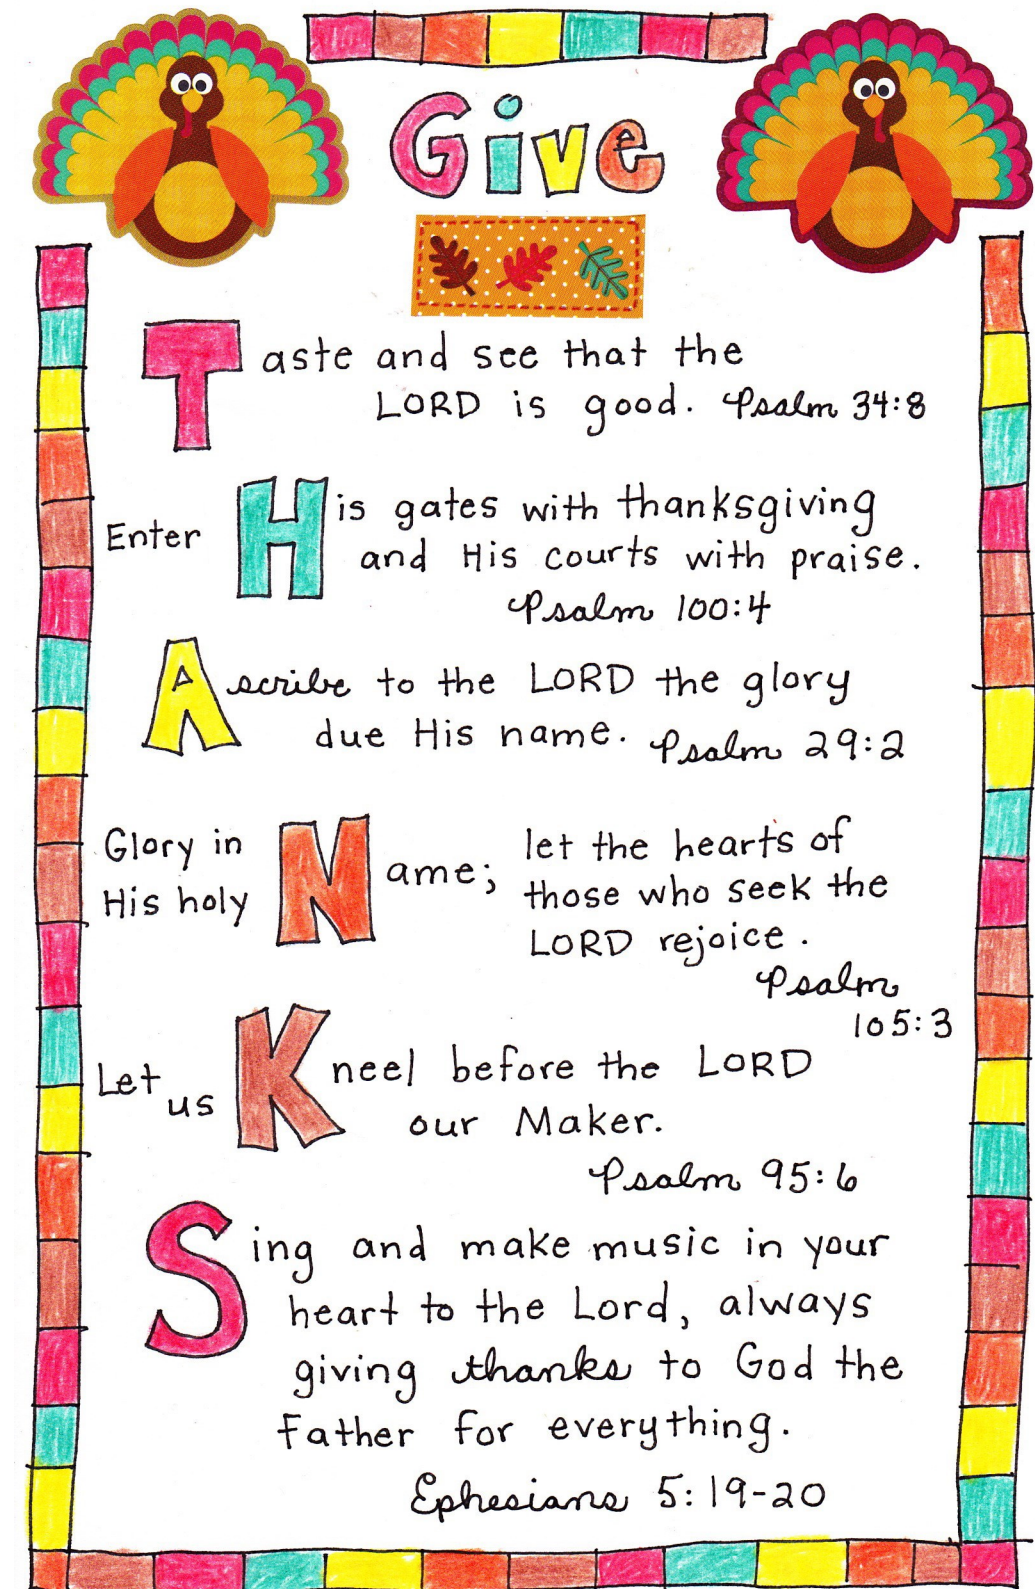 Give
Taste and see that the
LORD is good. Psalm 34:8
Enter His gates with thanksgiving
and His courts with praise.
Psalm 100:4
Ascribe to the LORD the glory
due His name. Psalm 29:2
Glory in
His holy Name; let the hearts of
those who seek the
LORD rejoice.
Psalm
105:3
Let us Kneel before the LORD
our Maker.
Psalm 95:6
Sing and make music in your
heart to the Lord, always
giving thanks to God the
Father for everything.
Ephesians 5:19-20